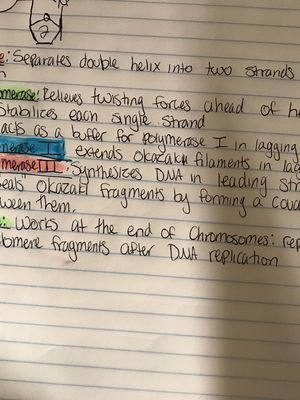 2
e: Separates double helix into two strands
n
omerase: Relieves twisting forces ahead of he
Stabilizes each single strand
acts as a buffer for polymerase I in lagging
merase I: extends okazaki filaments in lag
merase III: Synthesizes DNA in leading str
eals Okazaki fragments by forming a cova
ween them.
: Works at the end of Chromosomes: rep
lomere fragments after DNA replication